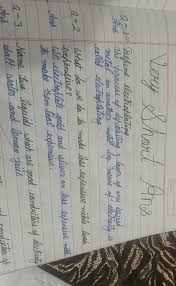 Very Short Ans
Q=1 Define electroplating.
Ans The process of depositing a layer of any desired
metal on another metal by means of electricity is
called electroplating.
Q=2 What do we do to make less expensive metals look
expensive?
Ans We electroplate gold and silver on less expensive metals
to make them look expensive.
Q=3 Name two liquids what are good conductors of electricity.
Ans water and lemon juice.